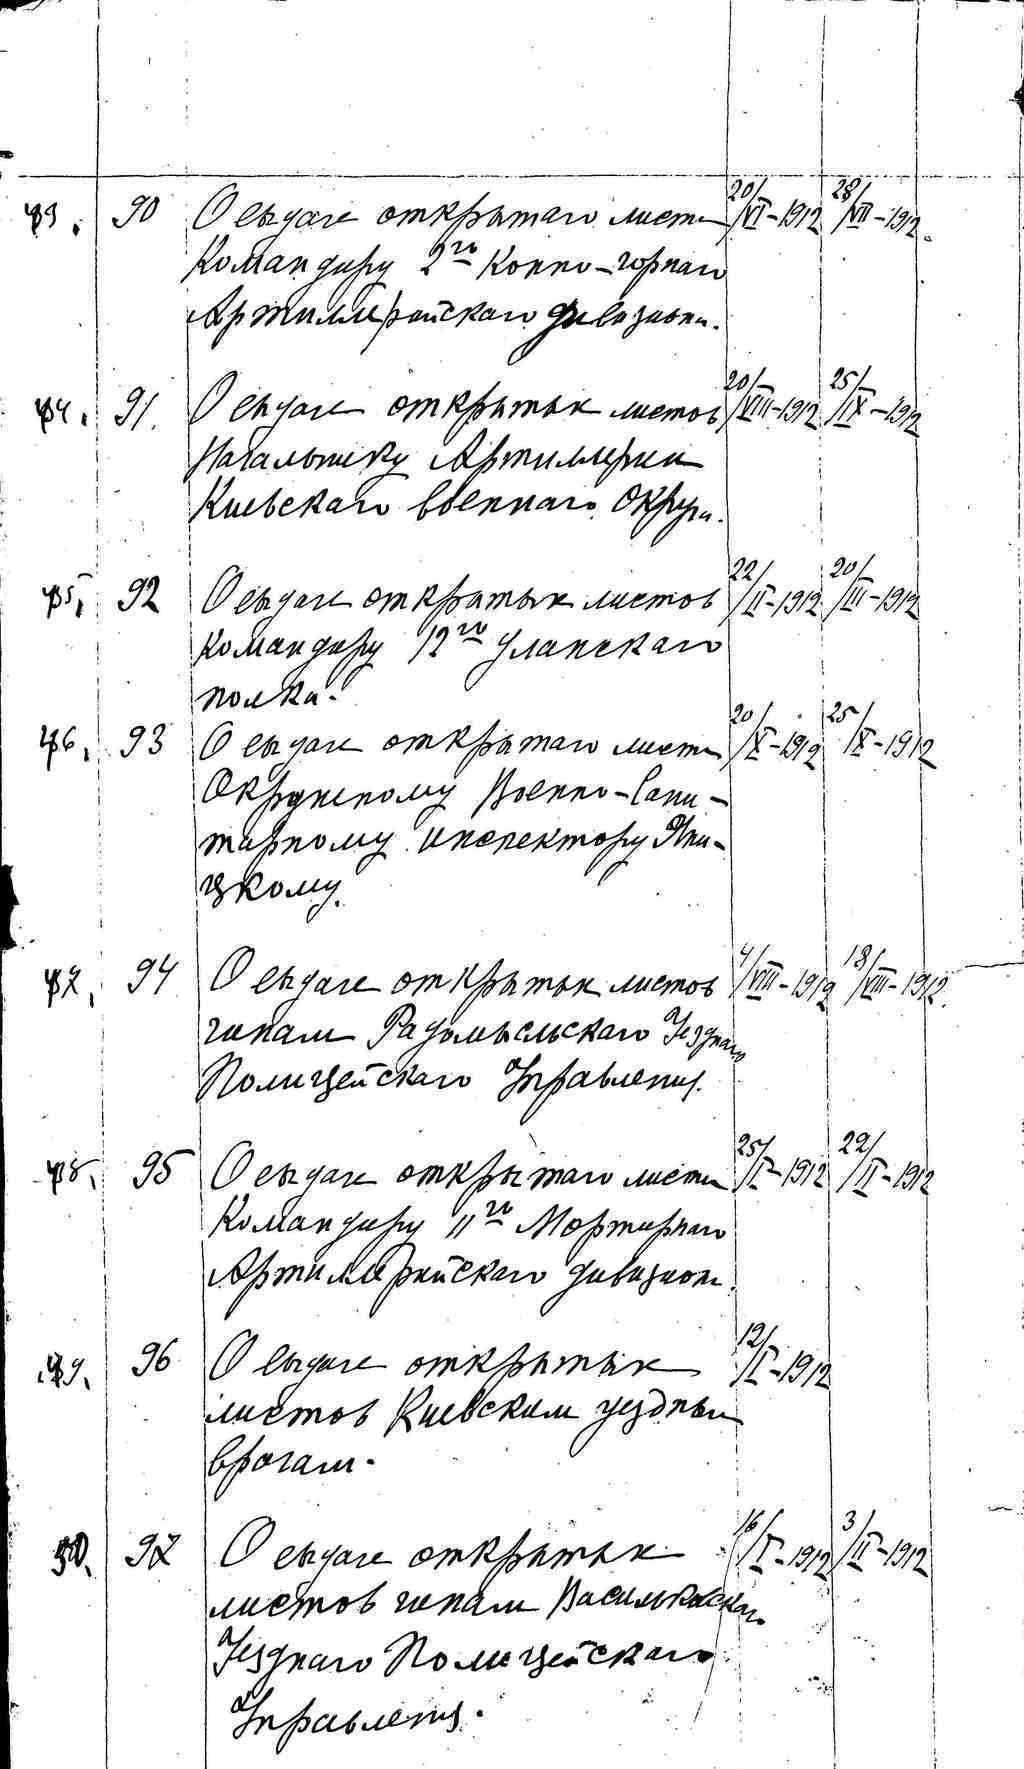 43. 90 О выдаче открытаго листа 20/VI-1912 28/VII-1912.
Командиру 2го Конно-горнаго
Артиллерійскаго дивизиона.
44. 91. О выдаче открытых листов 20/VIII-1912 25/IX-1912
Начальнику Артиллерии
Киевскаго военнаго Округа.
45. 92 О выдаче открытых листов 22/II-1912 20/III-1912
Командиру 12го Уланскаго
полка.
46. 93 О выдаче открытаго листа 20/X-1912 25/X-1912
Окружному Военно-Сани-
тарному инспектору
цкому.
47. 94 О выдаче открытых листов 4/VIII-1912 18/VIII-1912.
чинам Радомысльскаго Уезднаго
Полицейскаго Управления.
48. 95 О выдаче открытаго листа 25/I-1912 22/II-1912
Командиру 11го Мортирнаго
Артиллерийскаго дивизиона.
49. 96 О выдаче открытых 12/I-1912
листов Киевским уездным
врачам.
50. 97 О выдаче открытых 16/I-1912 3/II-1912
листов чинам Васильковскаго
Уезднаго Полицейскаго
Управления.